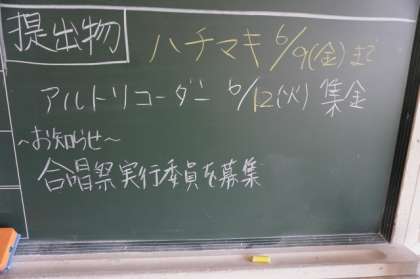 提出物 ハチマキ 6/9(金)まで
アルトリコーダー 6/12(火) 集金
~お知らせ~
合唱祭実行委員を募集